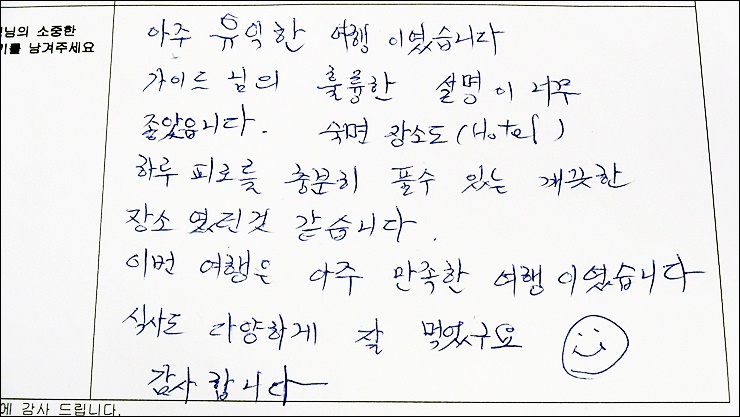 님의 소중한
기를 남겨주세요
아주 유익한 여행 이였습니다
가이드 님의 훌륭한 설명이 너무
좋았읍니다. 숙면 장소도(Hotel)
하루 피로를 충분히 풀수 있는 깨끗한
장소 였던것 같습니다.
이번 여행은 아주 만족한 여행이였습니다
식사도 다양하게 잘 먹었구요
감사 합니다
에 감사 드립니다.